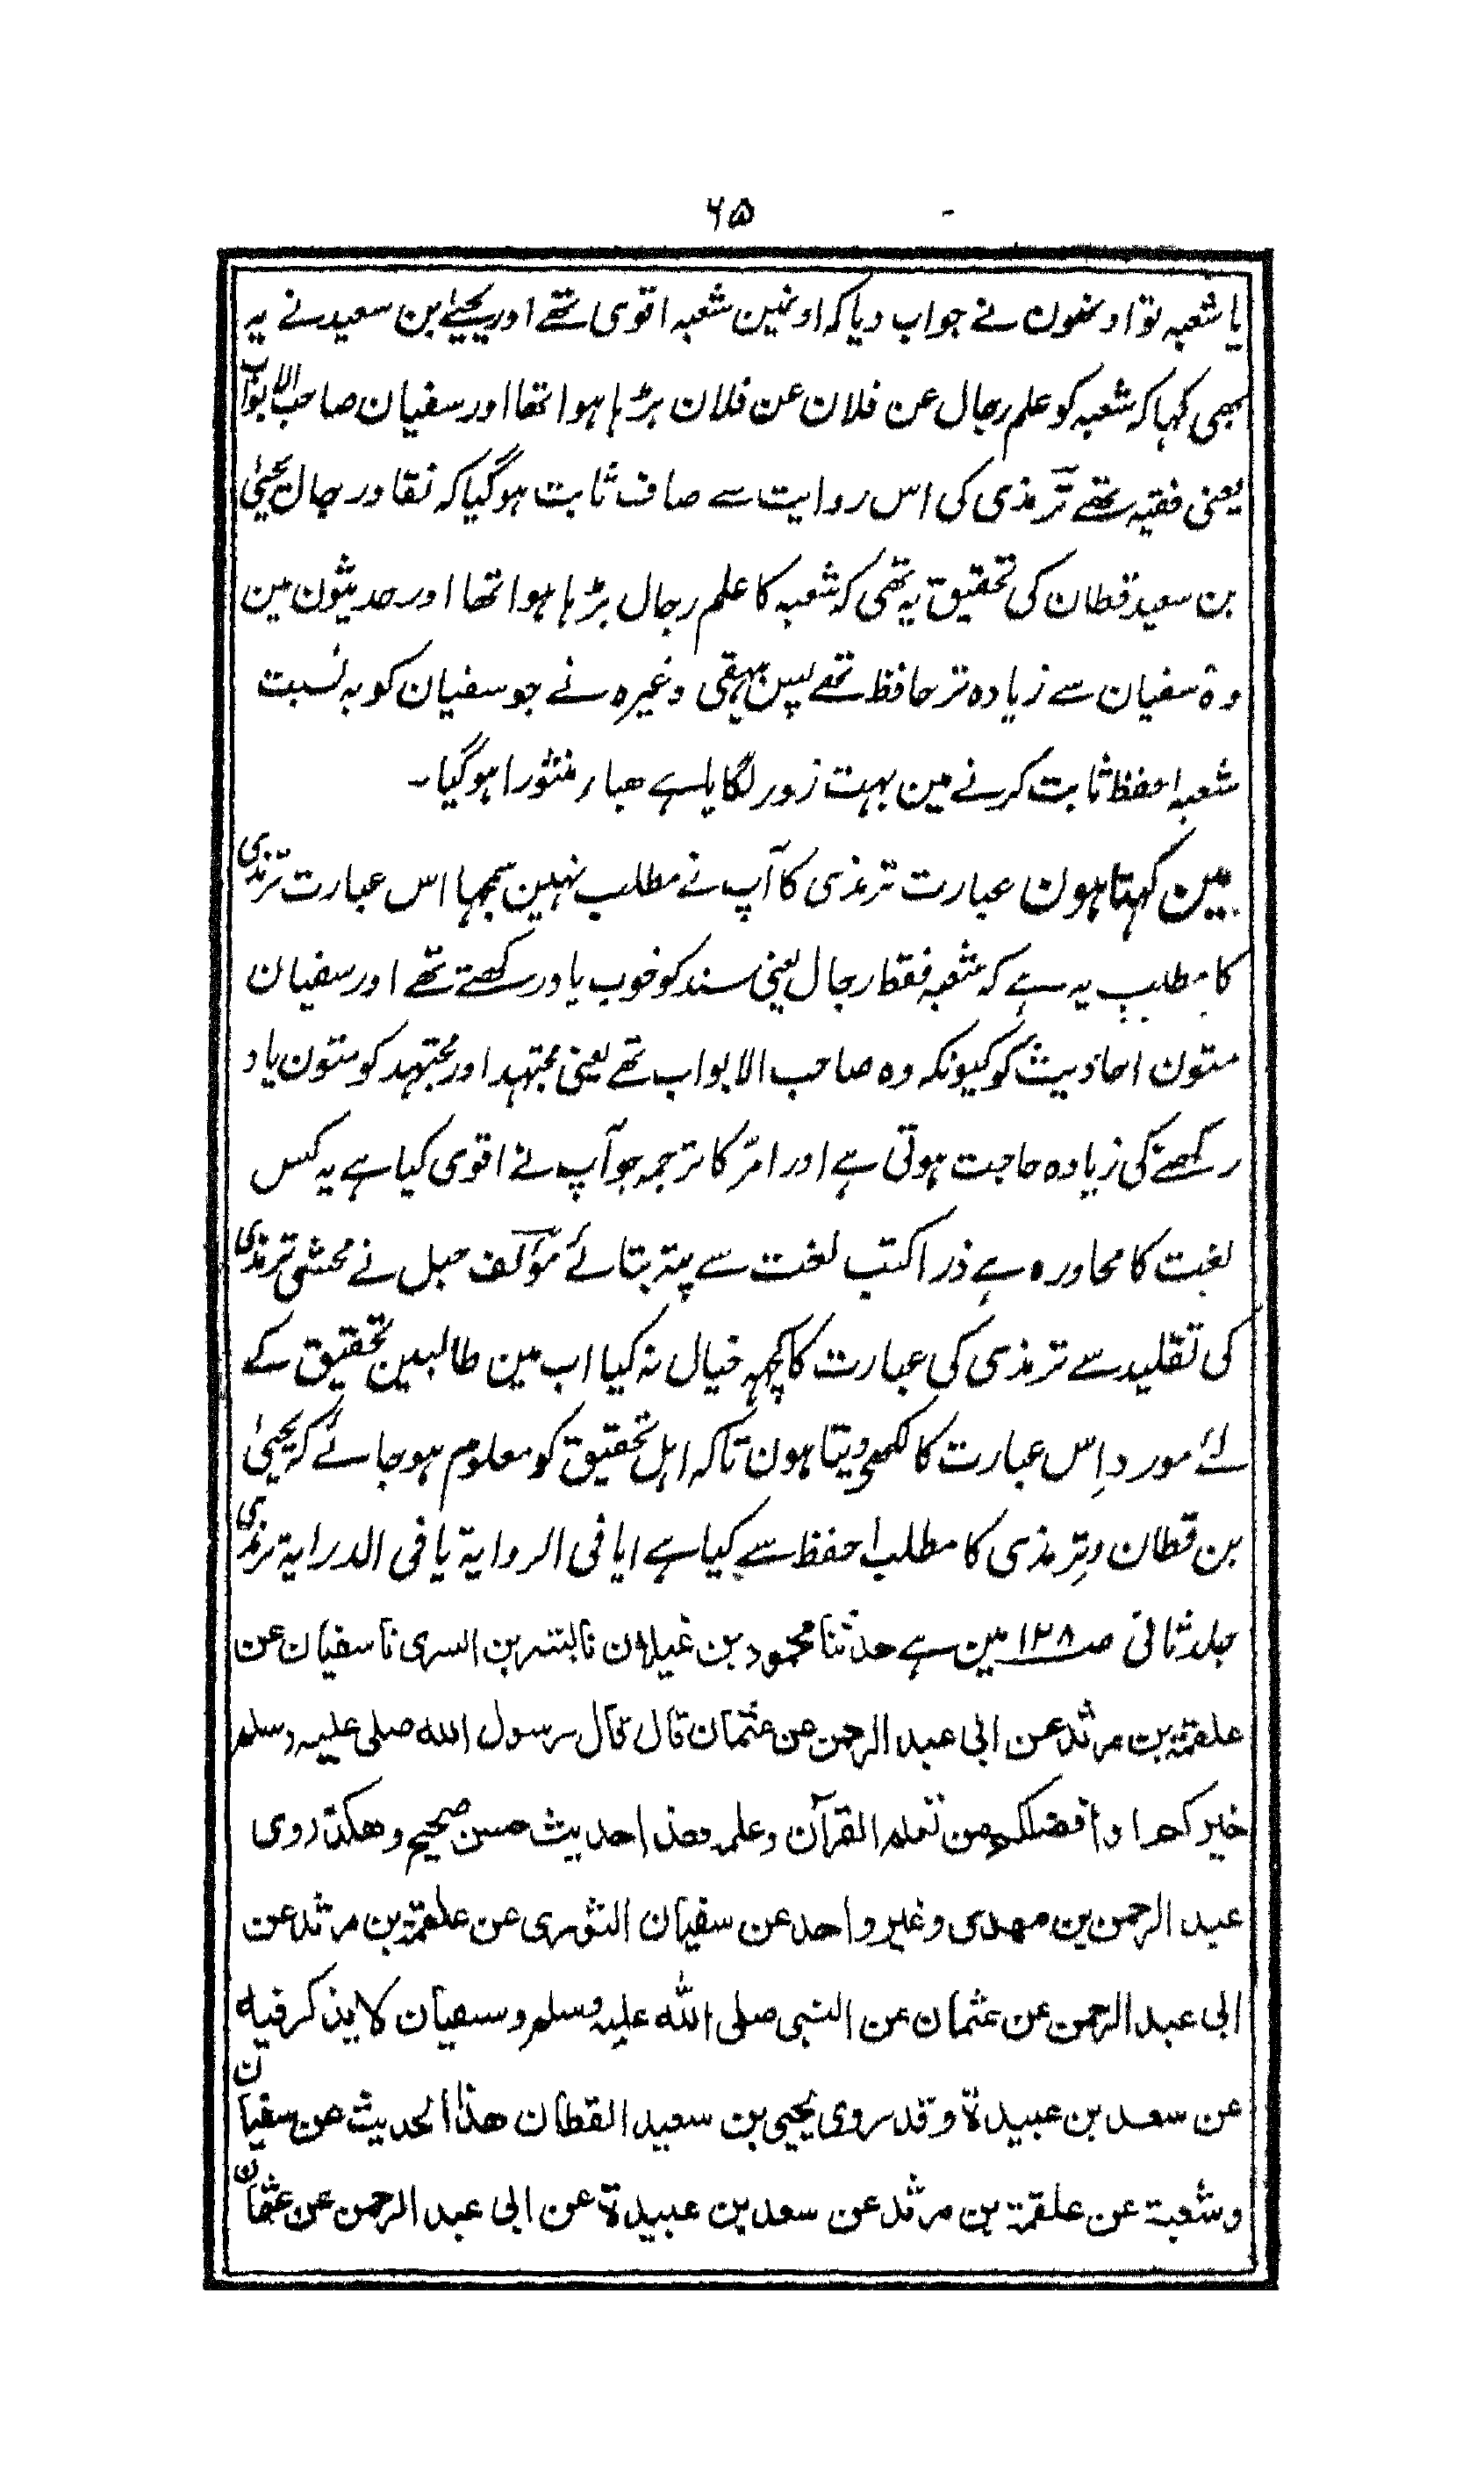 ۶۵
یا شعبہ تو اونھون نے جواب دیا کہ اونمین شعبہ اقوی تھے اور یحییٰ بن سعید نے یہ
بھی کہا کہ شعبہ کو علم رجال عن فلان عن فلان بڑہا ہوا تھا اور سفیان صاحب الابواب
یعنی فقیہ تھے ترمذی کی اس روایت سے صاف ثابت ہوگیا کہ نقاد رجال یحییٰ
بن سعید قطان کی تحقیق یہ تھی کہ شعبہ کا علم رجال بڑہا ہوا تھا اور حدیثون مین
وہ سفیان سے زیادہ تر حافظ تھے پس بیہقی وغیرہ نے جو سفیان کو بہ نسبت
شعبہ احفظ ثابت کرنے مین بہت زور لگایا ہے ھباء منثورا ہوگیا۔
مین کہتا ہون عبارت ترمذی کا آپ نے مطلب نہین سمجہا اس عبارت ترمذی
کا مطلب یہ ہے کہ شعبہ فقط رجال یعنی سند کو خوب یاد رکھتے تھے اور سفیان
متون احادیث کو کیونکہ وہ صاحب الابواب تھے یعنی مجتہد اور مجتہد کو متون یاد
رکھنے کی زیادہ حاجت ہوتی ہے اور امرّ کا ترجمہ جو آپ نے اقوی کیا ہے یہ کس
لغت کا محاورہ ہے ذرا کتب لغت سے پتہ بتائے مؤلف حبل نے محشی ترمذی
کی تقلید سے ترمذی کی عبارت کا کچہہ خیال نہ کیا اب مین طالبین تحقیق کے
لئے مورد اِس عبارت کا لکھی دیتا ہون تاکہ اہل تحقیق کو معلوم ہوجائے کہ یحییٰ
بن قطان و ترمذی کا مطلب احفظ سے کیا ہے ایا فی الروایۃ یا فی الدرایۃ ترمذی
جلد ثانی صـ ۱۲۸ مین ہے حدثنا محمود بن غیلان نا بشر بن السری نا سفیان عن
علقمۃ بن مرثد عن ابی عبد الرحمن عن عثمان قال قال رسول اللہ صلی علیہ وسلم
خیرکم او أفضلکم من تعلم القرآن وعلمہ ھذا حدیث حسن صحیح وھکذا روی
عبد الرحمن بن مھدی وغیر واحد عن سفیان الثوری عن علقمۃ بن مرثد عن
ابی عبد الرحمن عن عثمان عن النبی صلی اللہ علیہ وسلم وسفیان لا یذکر فیہ
عن سعد بن عبیدۃ وقد روی یحیی بن سعید القطان ھذا الحدیث عن سفیان
وشعبۃ عن علقمۃ بن مرثد عن سعد بن عبیدۃ عن ابی عبد الرحمن عن عثمان